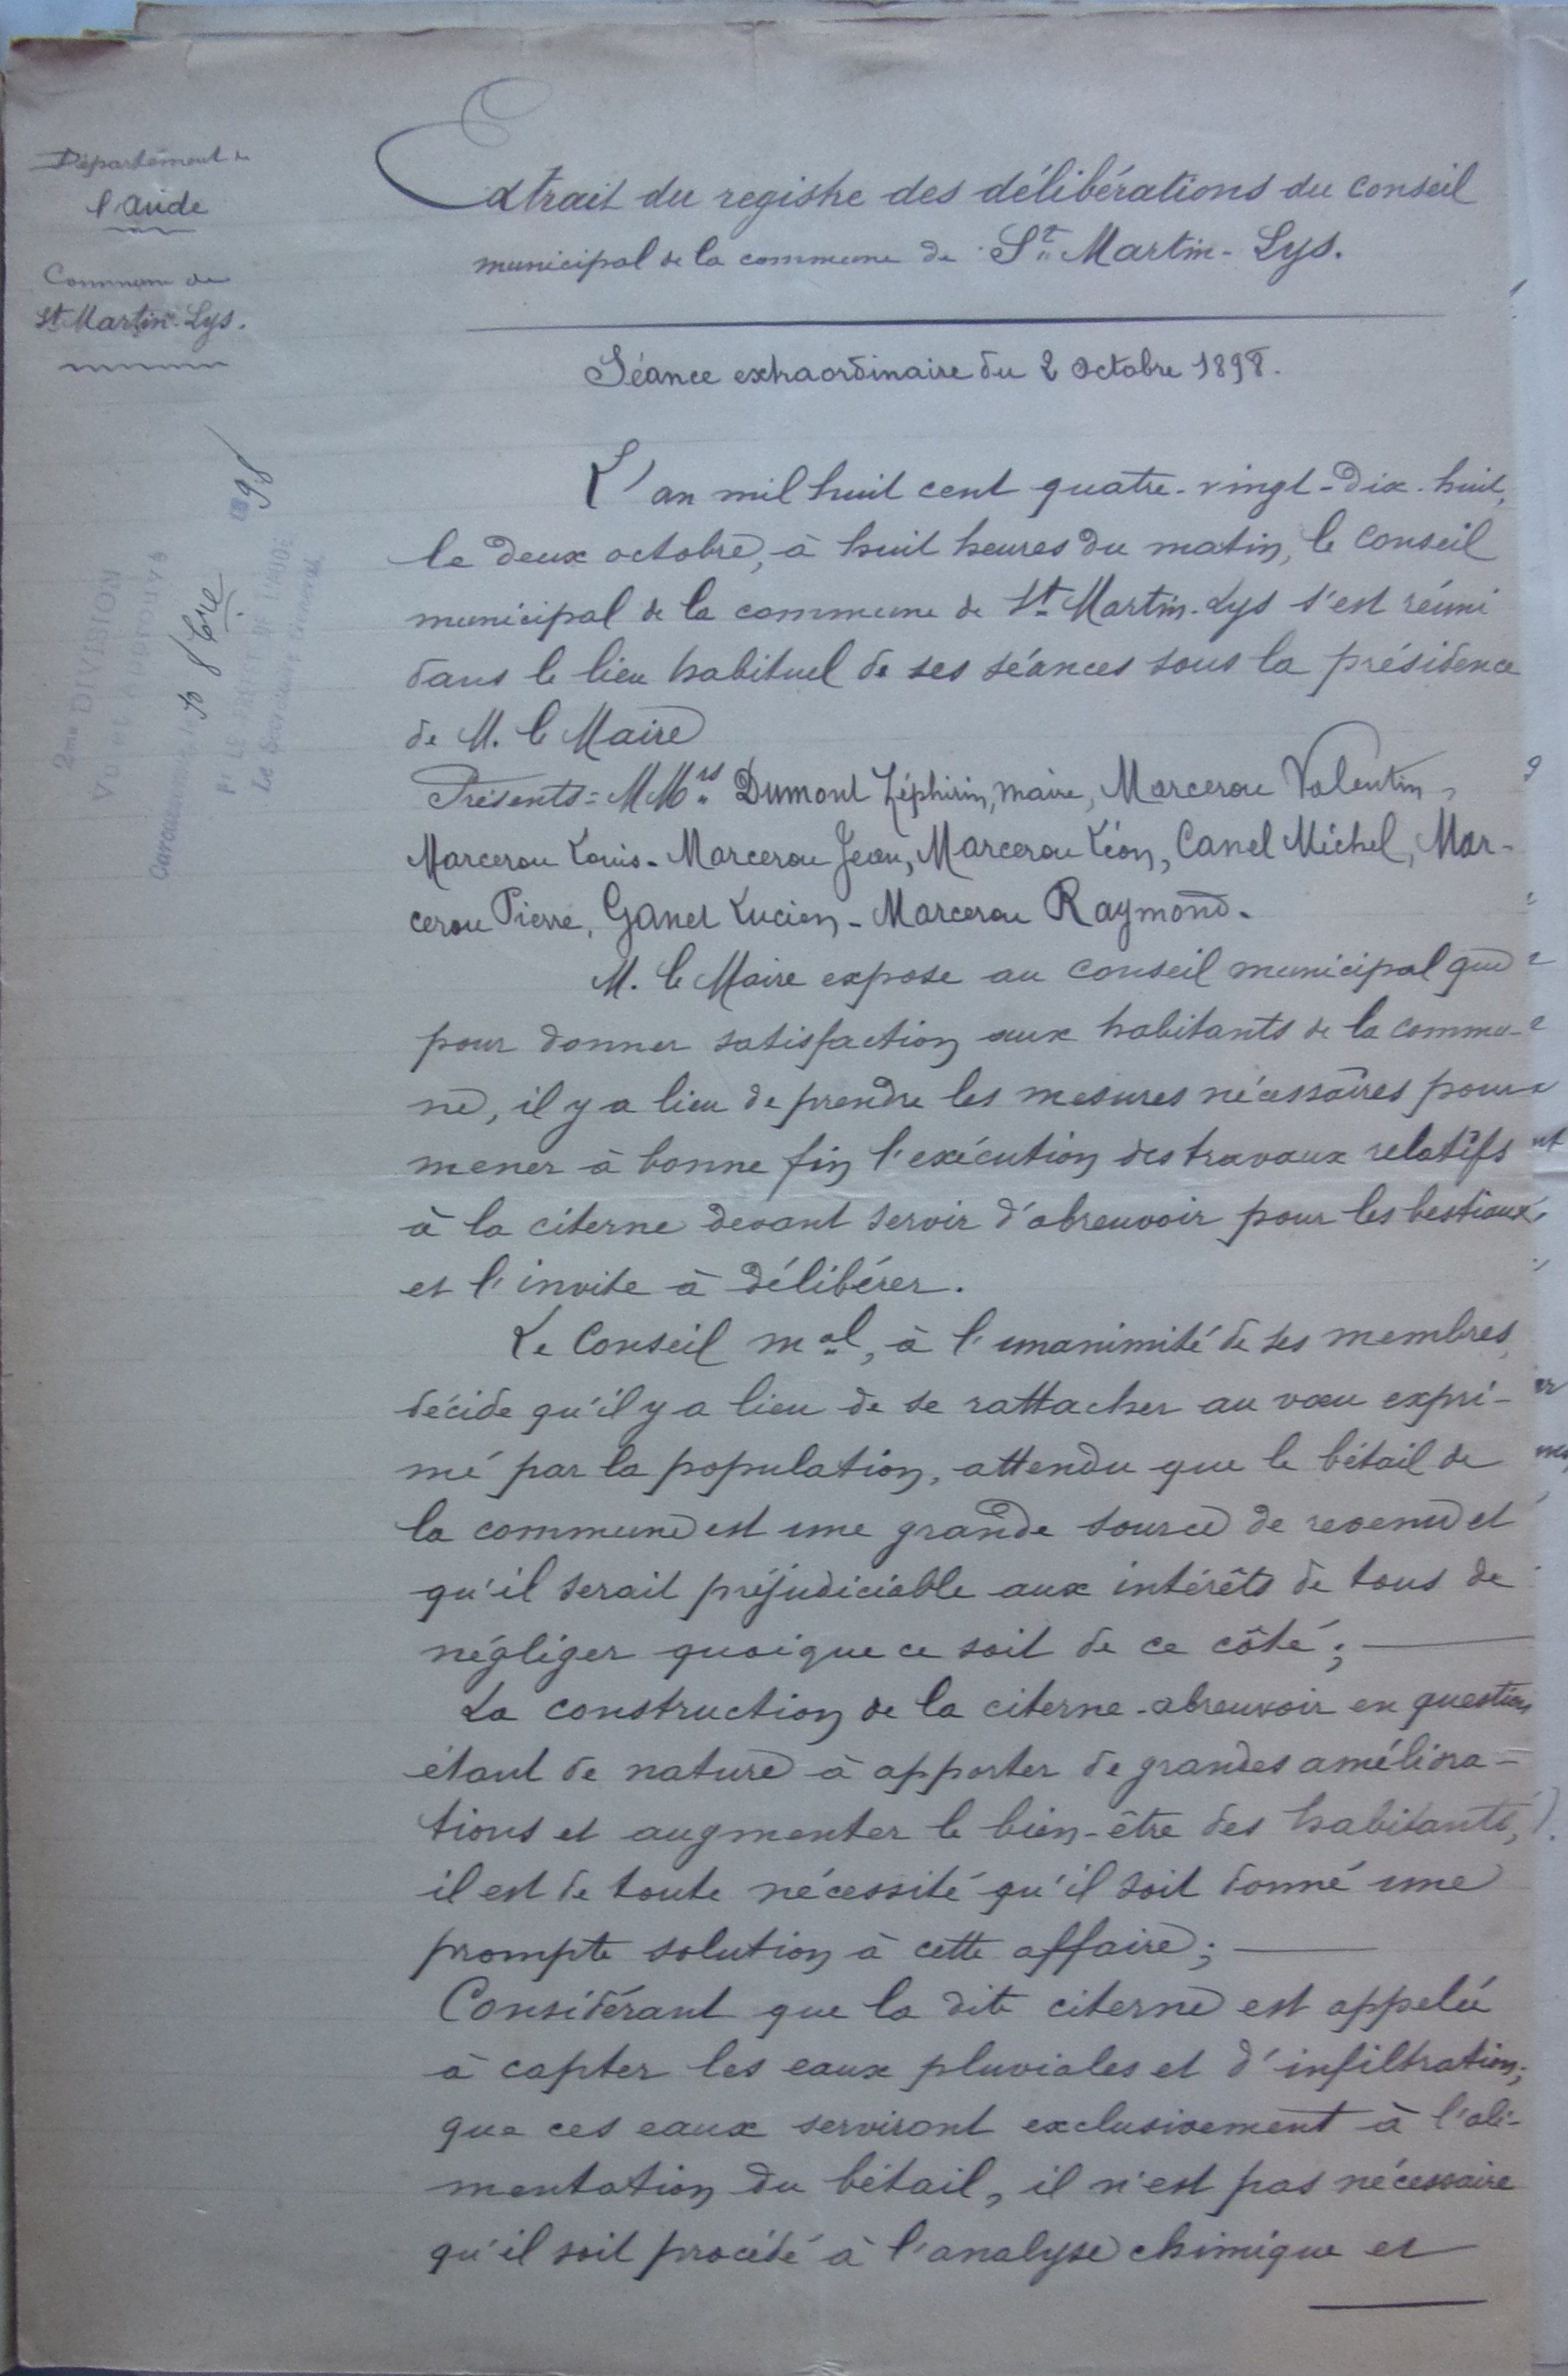 Département de
l'Aude
Commune de
St Martin-Lys.
2me DIVISION
Vu et approuvé
Carcassonne, le 10 8bre 1898
Pr LE PRÉFET DE L'AUDE
Le Secrétaire Général,
Extrait du registre des délibérations du conseil
municipal de la commune de St Martin-Lys.
Séance extraordinaire du 2 octobre 1898.
L'an mil huit cent quatre-vingt-dix-huit,
le deux octobre, à huit heures du matin, le conseil
municipal de la commune de St Martin-Lys s'est réuni
dans le lieu habituel de ses séances sous la présidence
de M. le Maire
Présents = MMrs Dumont Zéphirin, maire, Marcerou Valentin,
Marcerou Louis - Marcerou Jean, Marcerou Léon, Canel Michel, Mar-
cerou Pierre, Ganel Lucien - Marcerou Raymond.
M. le Maire expose au conseil municipal que
pour donner satisfaction aux habitants de la commu-
ne, il y a lieu de prendre les mesures nécessaires pour
mener à bonne fin l'exécution des travaux relatifs
à la citerne devant servir d'abreuvoir pour les bestiaux,
et l'invite à délibérer.
Le Conseil mal, à l'unanimité de ses membres,
décide qu'il y a lieu de se rattacher au vœu expri-
mé par la population, attendu que le bétail de
la commune est une grande source de revenu et
qu'il serait préjudiciable aux intérêts de tous de
négliger quoique ce soit de ce côté ;
La construction de la citerne-abreuvoir en question
étant de nature à apporter de grandes améliora-
tions et augmenter le bien-être des habitants,
il est de toute nécessité qu'il soit donné une
prompte solution à cette affaire ;
Considérant que la dite citerne est appelée
à capter les eaux pluviales et d'infiltration ;
que ces eaux serviront exclusivement à l'ali-
mentation du bétail, il n'est pas nécessaire
qu'il soit procédé à l'analyse chimique et